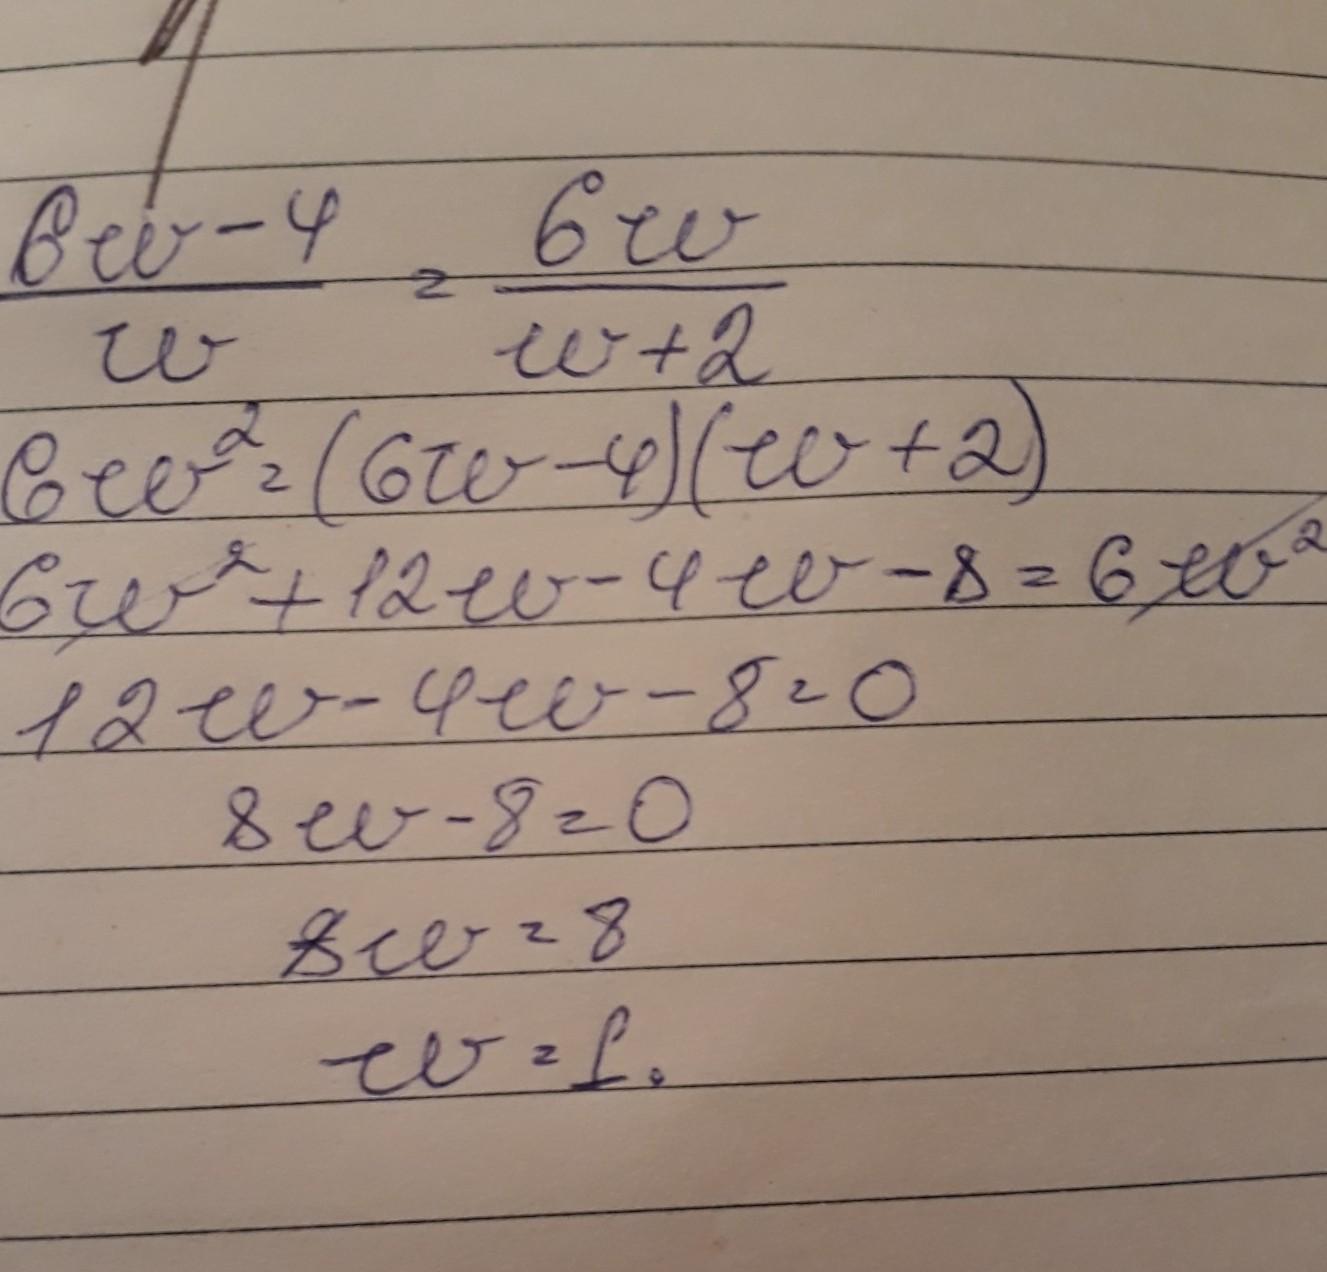 6w-4 = 6w
w w+2
6w² = (6w-4)(w+2)
6w² + 12w - 4w - 8 = 6w²
12w - 4w - 8 = 0
8w - 8 = 0
8w = 8
w = 1.